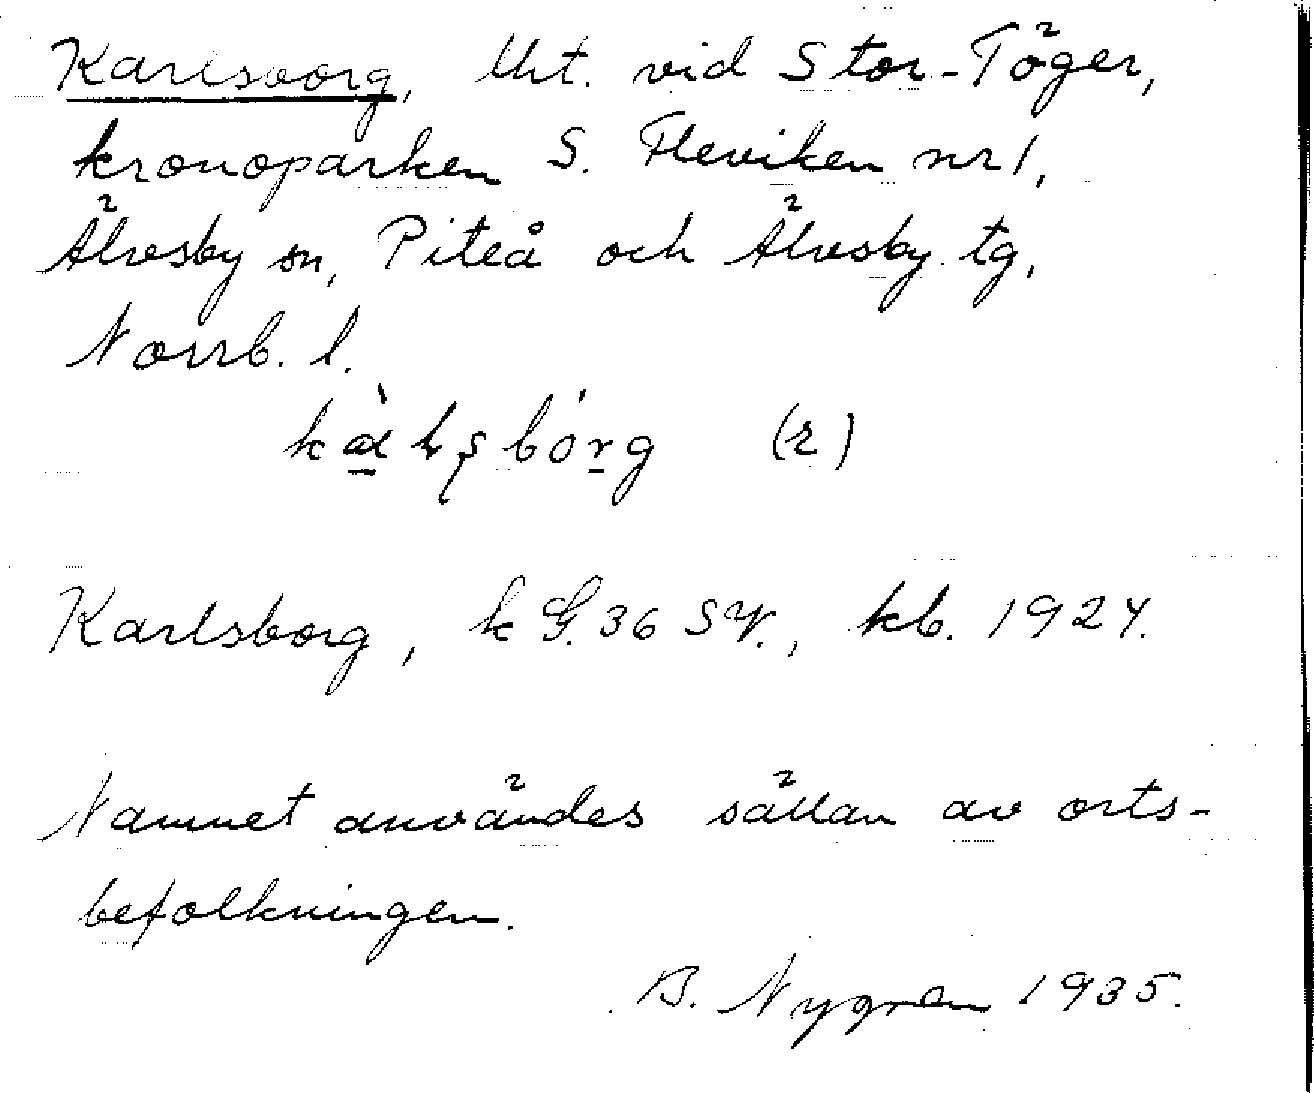 Karlsborg, tht. vid Stor-Töger,
kronoparken S. Fleviken nr 1,
Älvsby sn, Piteå och Älvsby tg,
Norrb. l.
(r)
Karlsborg, k G. 36 SV., kb. 1924.
Namnet användes sällan av orts-
befolkningen.
B. Nygren 1935.